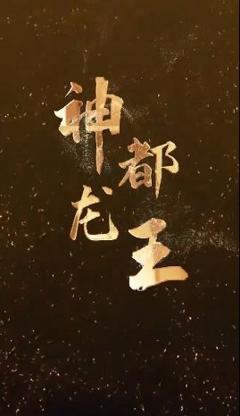 神都
龙王